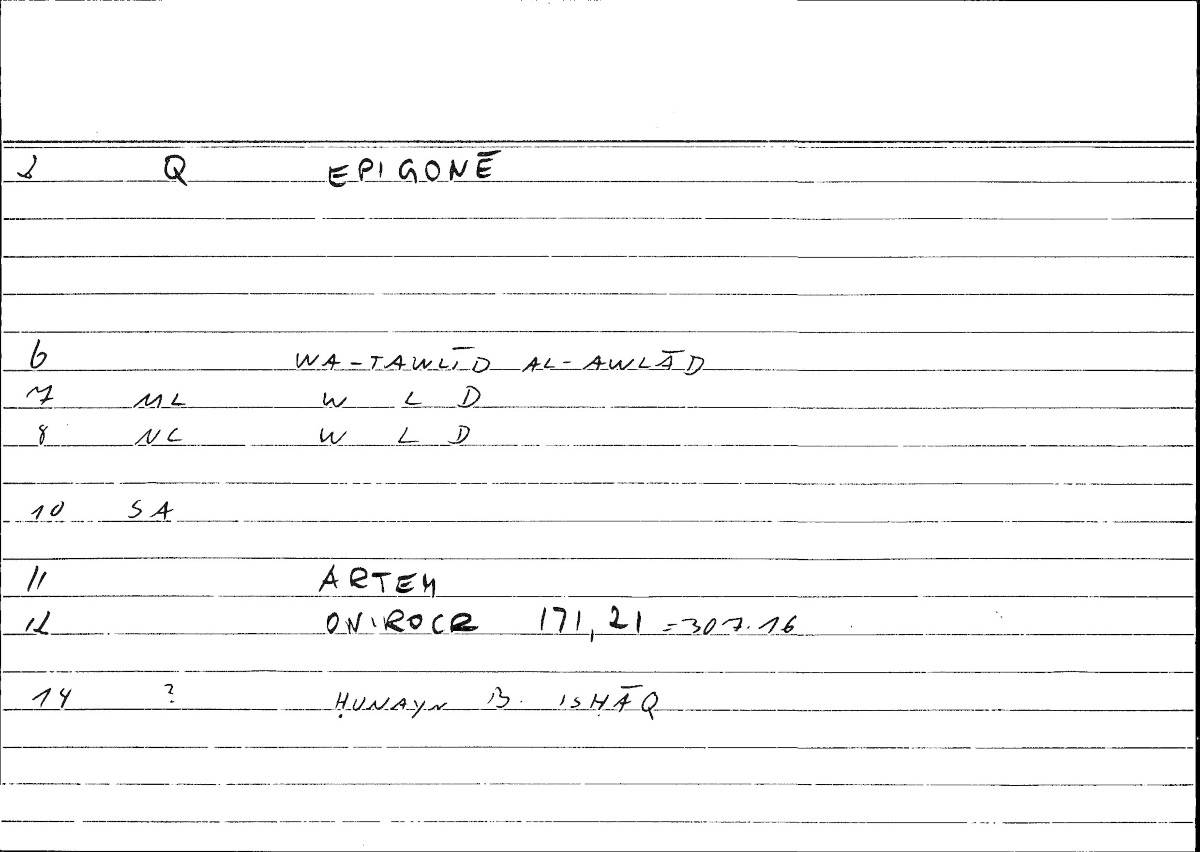 2 Q EPIGONĒ
6 WA-TAWLĪD AL-AWLĀD
7 ML W L D
8 NC W L D
10 SA
11 ARTEM
12 ONIROCR 171,21 =307.16
14 ? ḤUNAYN B. ISḤĀQ